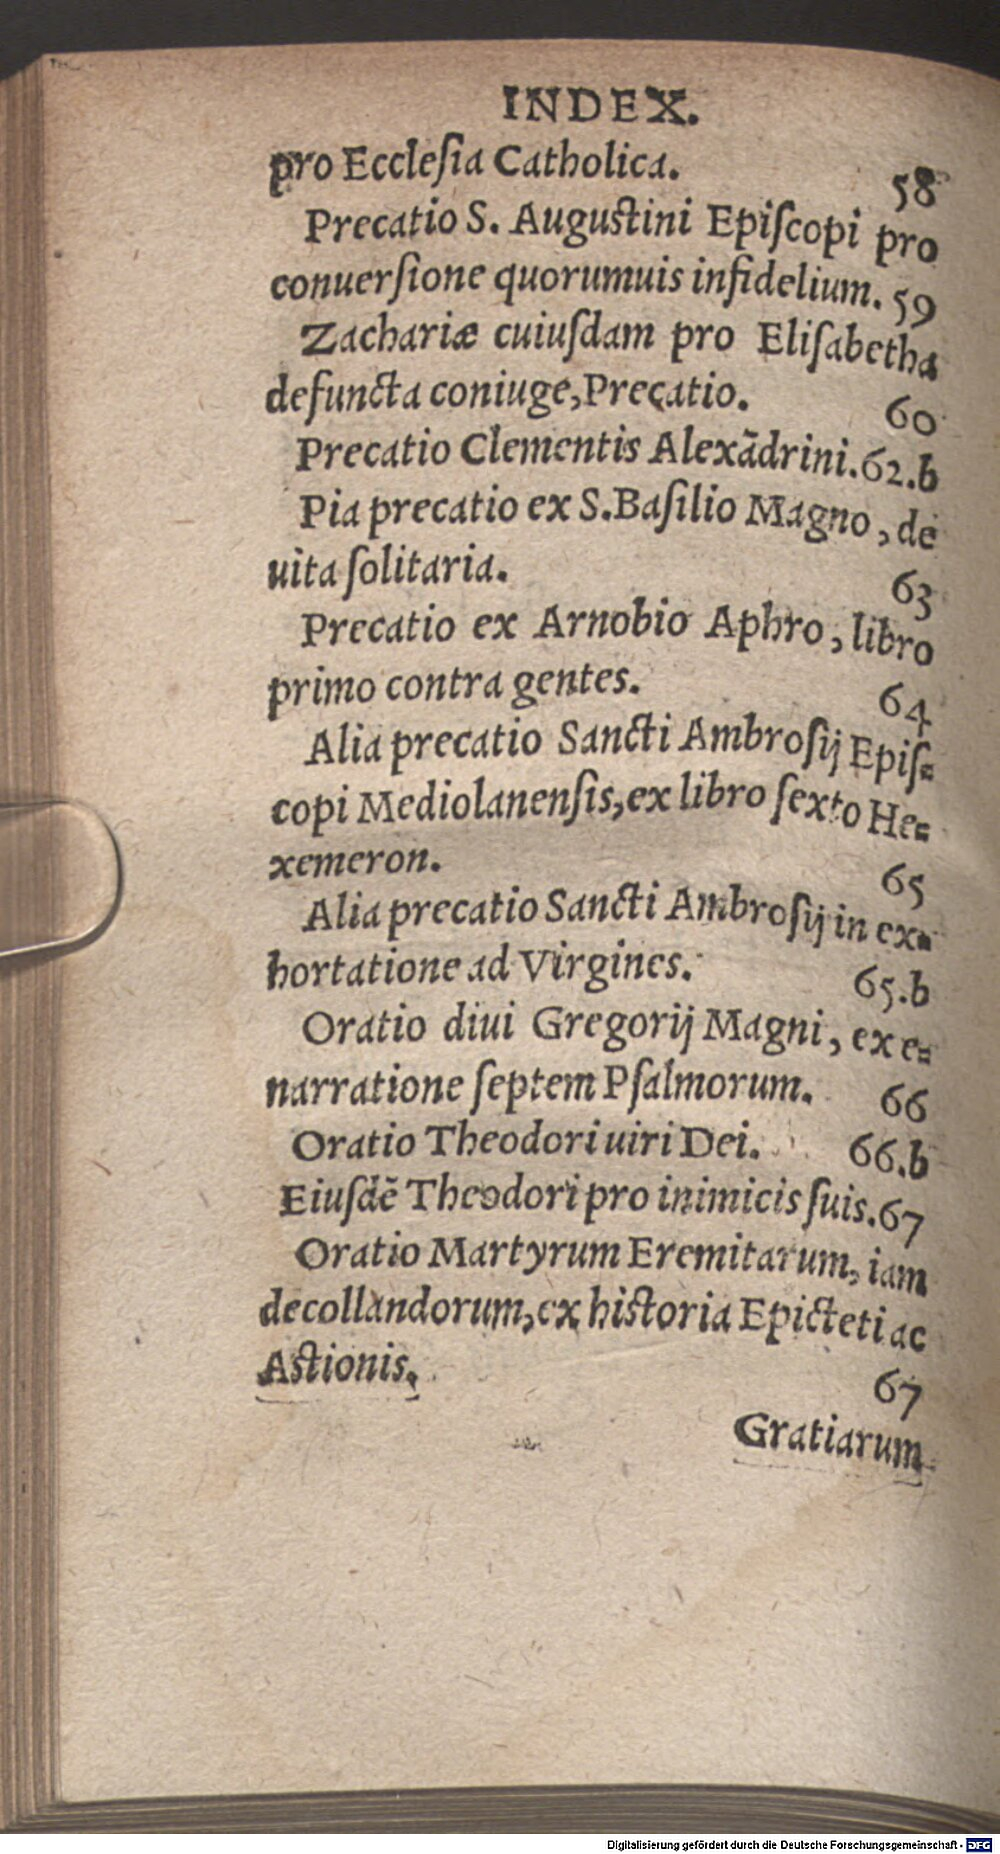 INDEX.
pro Eccleſia Catholica. 58
Precatio S. Auguſtini Epiſcopi pro
conuerſione quorumuis infidelium. 59
Zachariæ cuiuſdam pro Eliſabetha
defuncta coniuge, Precatio. 60
Precatio Clementis Alexãdrini. 62.b
Pia precatio ex S. Baſilio Magno, de
uita ſolitaria. 63
Precatio ex Arnobio Aphro, libro
primo contra gentes. 64
Alia precatio Sancti Ambroſij Epiſ=
copi Mediolanenſis, ex libro ſexto He=
xemeron. 65
Alia precatio Sancti Ambroſij in ex=
hortatione ad Virgines. 65.b
Oratio diui Gregorij Magni, ex e=
narratione ſeptem Pſalmorum. 66
Oratio Theodori uiri Dei. 66.b
Eiuſdẽ Theodori pro inimicis ſuis. 67
Oratio Martyrum Eremitarum, iam
decollandorum, ex hiſtoria Epicteti ac
Aſtionis. 67
Gratiarum
Digitalisierung gefördert durch die Deutsche Forschungsgemeinschaft - DFG